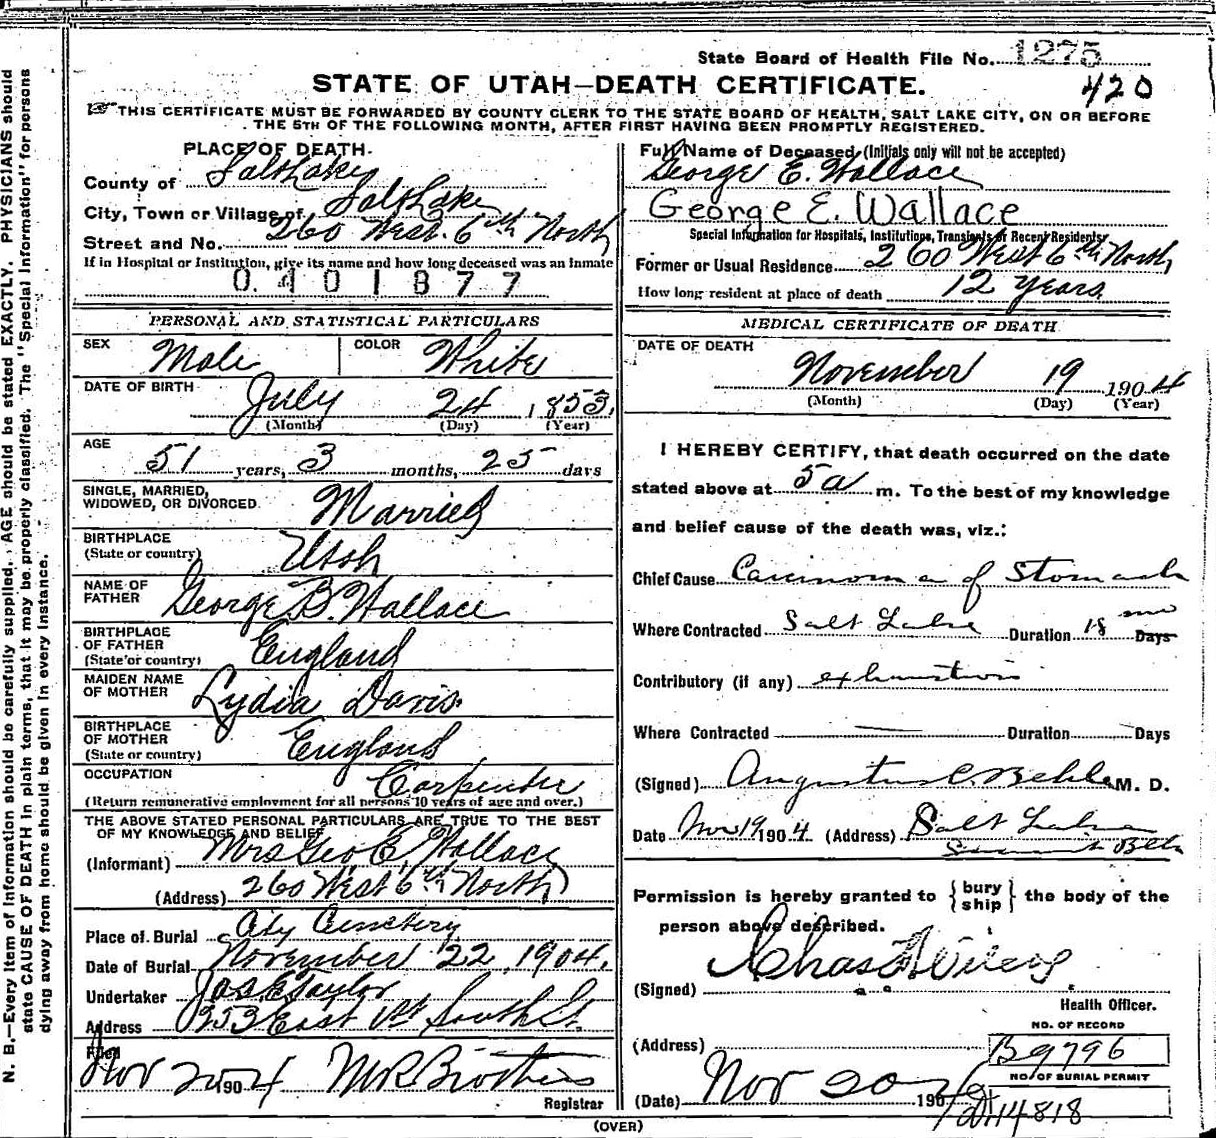 State Board of Health File No. 1275
STATE OF UTAH—DEATH CERTIFICATE.
420
THIS CERTIFICATE MUST BE FORWARDED BY COUNTY CLERK TO THE STATE BOARD OF HEALTH, SALT LAKE CITY, ON OR BEFORE
THE 5TH OF THE FOLLOWING MONTH, AFTER FIRST HAVING BEEN PROMPTLY REGISTERED.
PLACE OF DEATH.
County of Salt Lake
City, Town or Village of Salt Lake
Street and No. 260 West 6th North
If in Hospital or Institution, give its name and how long deceased was an Inmate
0401877
PERSONAL AND STATISTICAL PARTICULARS
SEX Male COLOR White
DATE OF BIRTH July 24, 1853,
(Month) (Day) (Year)
AGE 51 years, 3 months, 25 days
SINGLE, MARRIED,
WIDOWED, OR DIVORCED Married
BIRTHPLACE
(State or country) Utah
NAME OF
FATHER George B. Wallace
BIRTHPLACE
OF FATHER
(State or country) England
MAIDEN NAME
OF MOTHER Lydia Davis.
BIRTHPLACE
OF MOTHER
(State or country) England
OCCUPATION Carpenter
(Return remunerative employment for all persons 10 years of age and over.)
THE ABOVE STATED PERSONAL PARTICULARS ARE TRUE TO THE BEST
OF MY KNOWLEDGE AND BELIEF
(Informant) Mrs Geo E. Wallace
(Address) 260 West 6th North
Place of Burial City Cemetery
Date of Burial November 22, 1904.
Undertaker Jos. E. Taylor
Address 253 East 1st South St.
Filed Nov 20 1904
Registrar
Full Name of Deceased (Initials only will not be accepted)
George E. Wallace
George E. Wallace
Special Information for Hospitals, Institutions, Transients or Recent Residents
Former or Usual Residence 260 West 6th North
How long resident at place of death 12 years
MEDICAL CERTIFICATE OF DEATH
DATE OF DEATH
November 19 1904
(Month) (Day) (Year)
I HEREBY CERTIFY, that death occurred on the date
stated above at 5 a m. To the best of my knowledge
and belief cause of the death was, viz.:
Chief Cause Carcinoma of Stomach
Where Contracted Salt Lake Duration 18 mo Days
Contributory (if any) exhaustion
Where Contracted Duration Days
(Signed) Augustus C. Behle M. D.
Date Nov 19 1904 (Address) Salt Lake
Permission is hereby granted to { bury ship } the body of the
person above described.
(Signed) Chas
Health Officer.
(Address)
NO. OF RECORD
B9796
NO. OF BURIAL PERMIT
14818
(Date) Nov 20 1904
(OVER)
N. B.—Every item of information should be carefully supplied. AGE should be stated EXACTLY. PHYSICIANS should
state CAUSE OF DEATH in plain terms, that it may be properly classified. The "Special Information" for persons
dying away from home should be given in every instance.